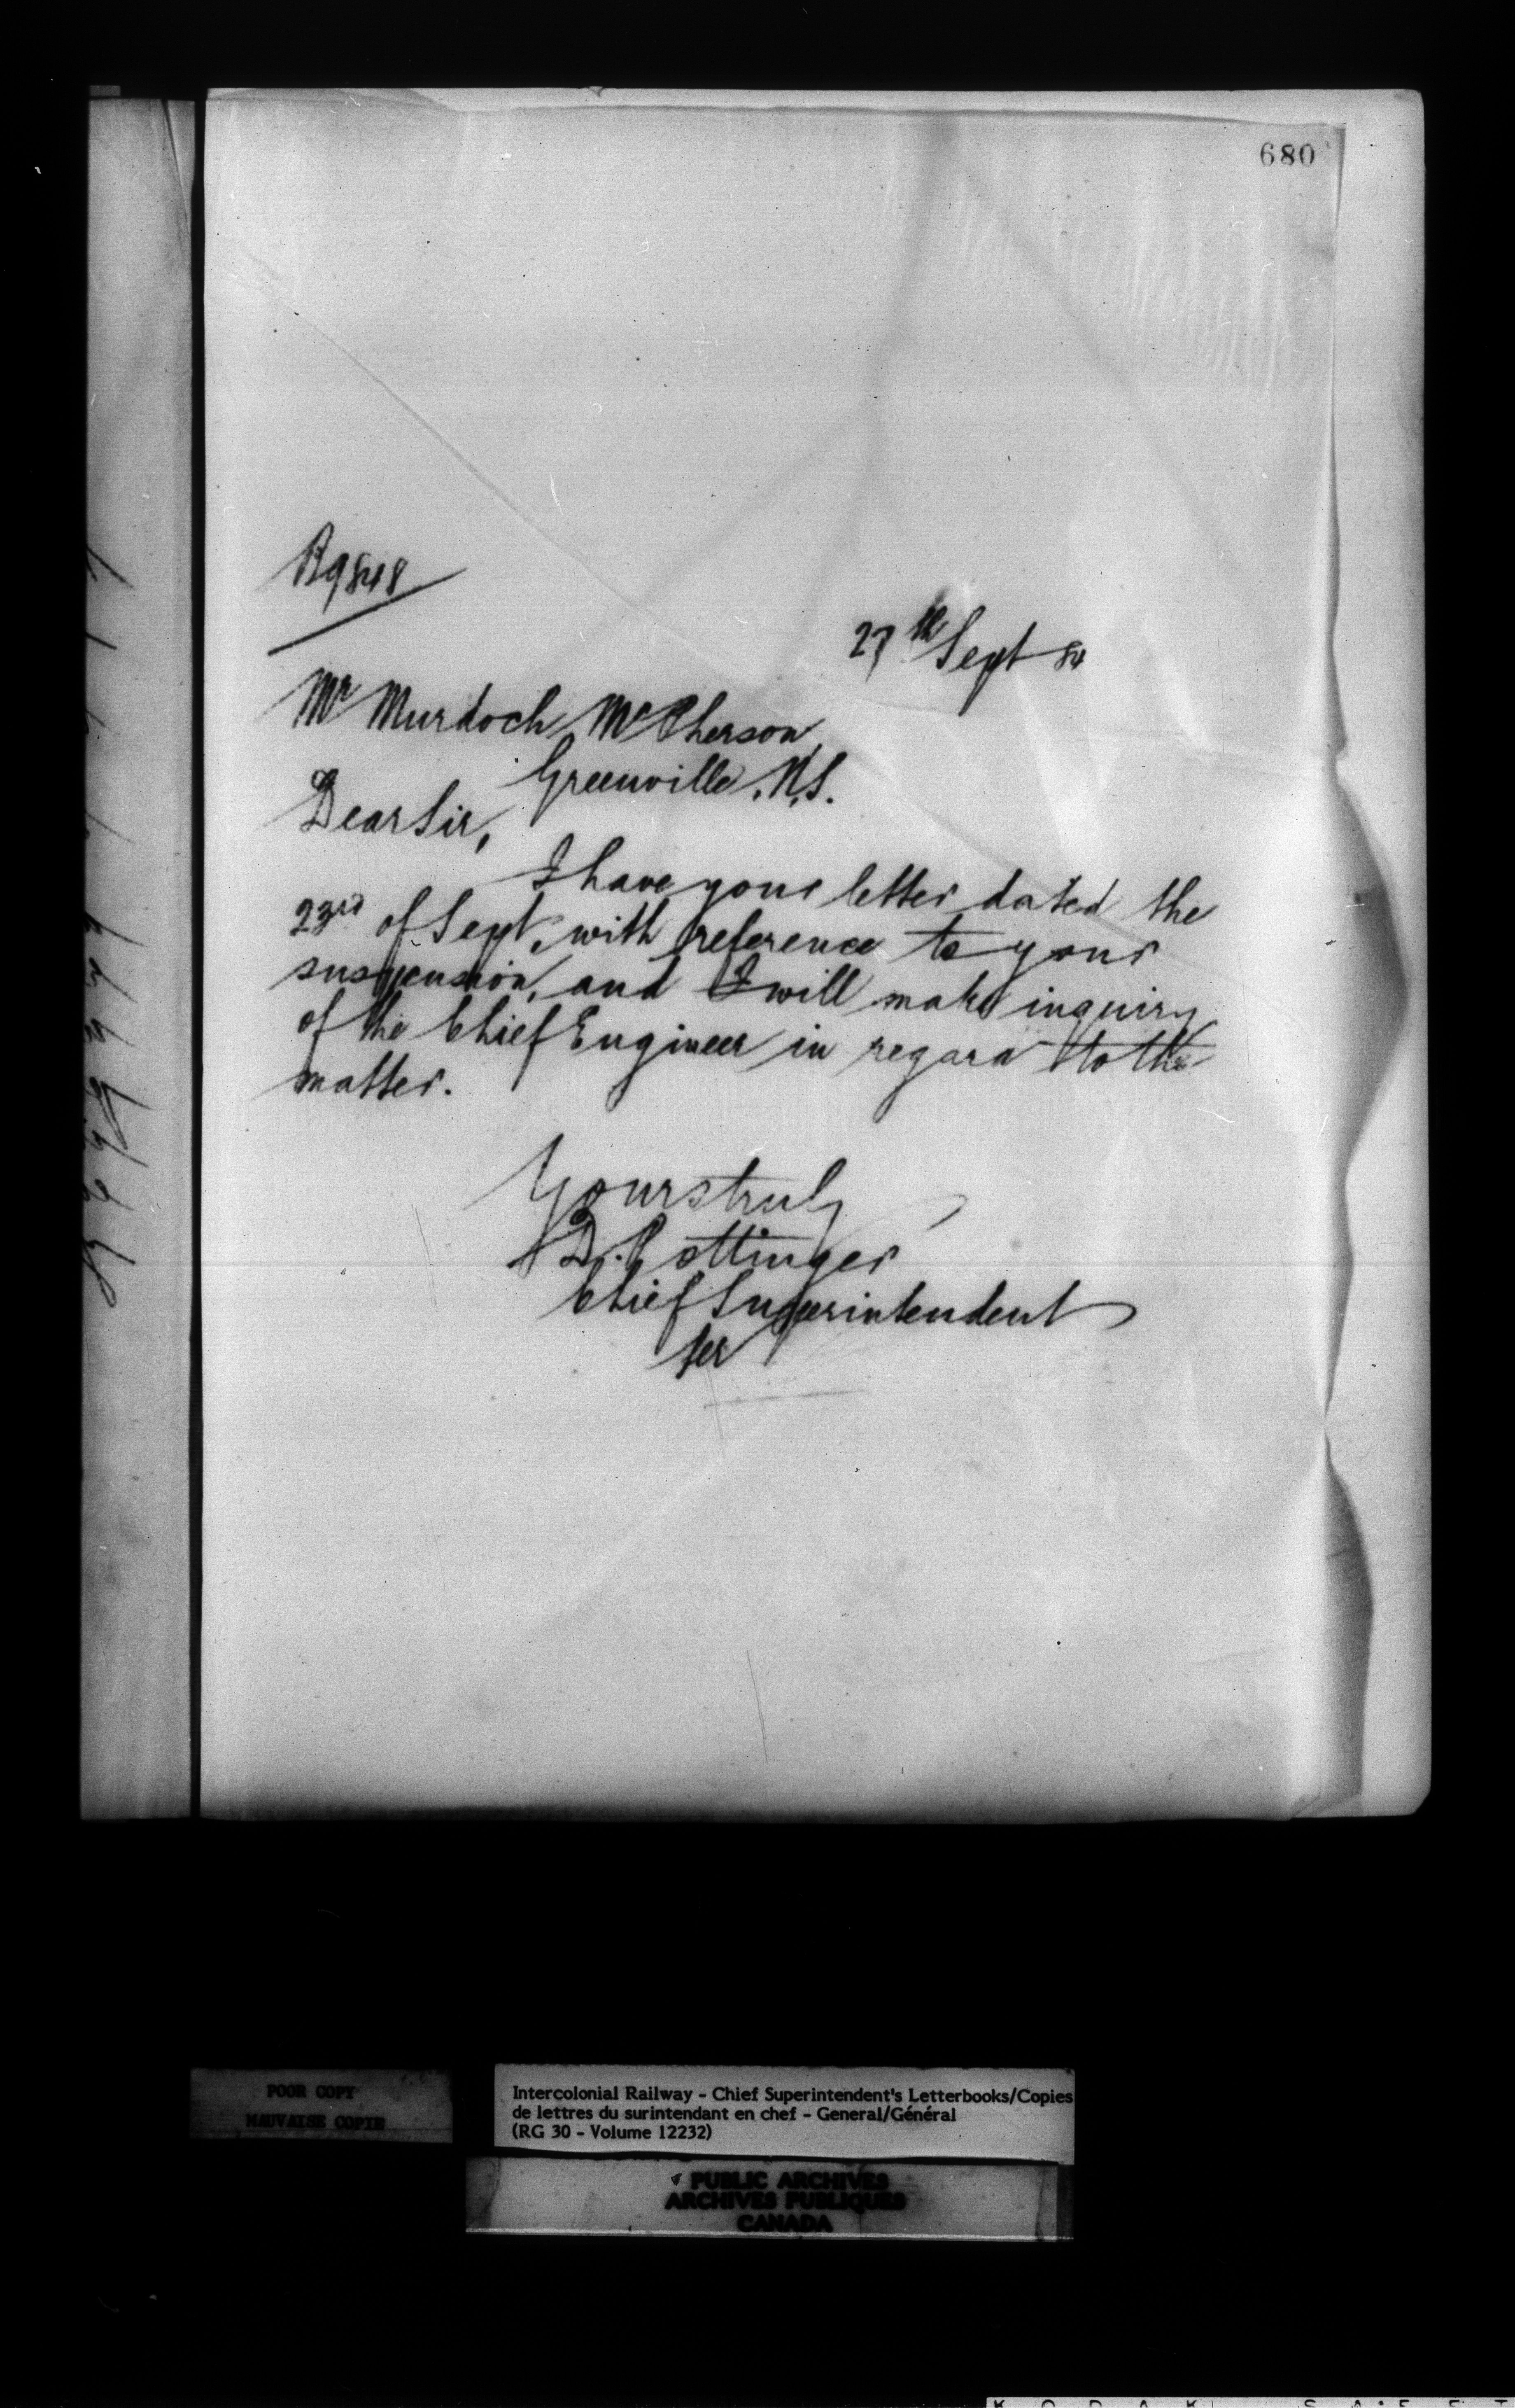 680
R9848
27th Sept 84
Mr Murdoch McPherson
Greenville, N.S.
Dear Sir,
I have your letter dated the
23rd of Sept, with reference to your
suspension, and I will make inquiry
of the Chief Engineer in regard to the
matter.
Yours truly
D. Pottinger
Chief Superintendent
per
POOR COPY
MAUVAISE COPIE
Intercolonial Railway - Chief Superintendent's Letterbooks/Copies
de lettres du surintendant en chef - General/Général
(RG 30 - Volume 12232)
PUBLIC ARCHIVES
ARCHIVES PUBLIQUES
CANADA